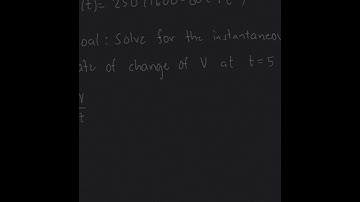 (t)= 250(1600-80t+t²)
oal: Solve for the instantaneou
ate of change of V at t=5
V
t